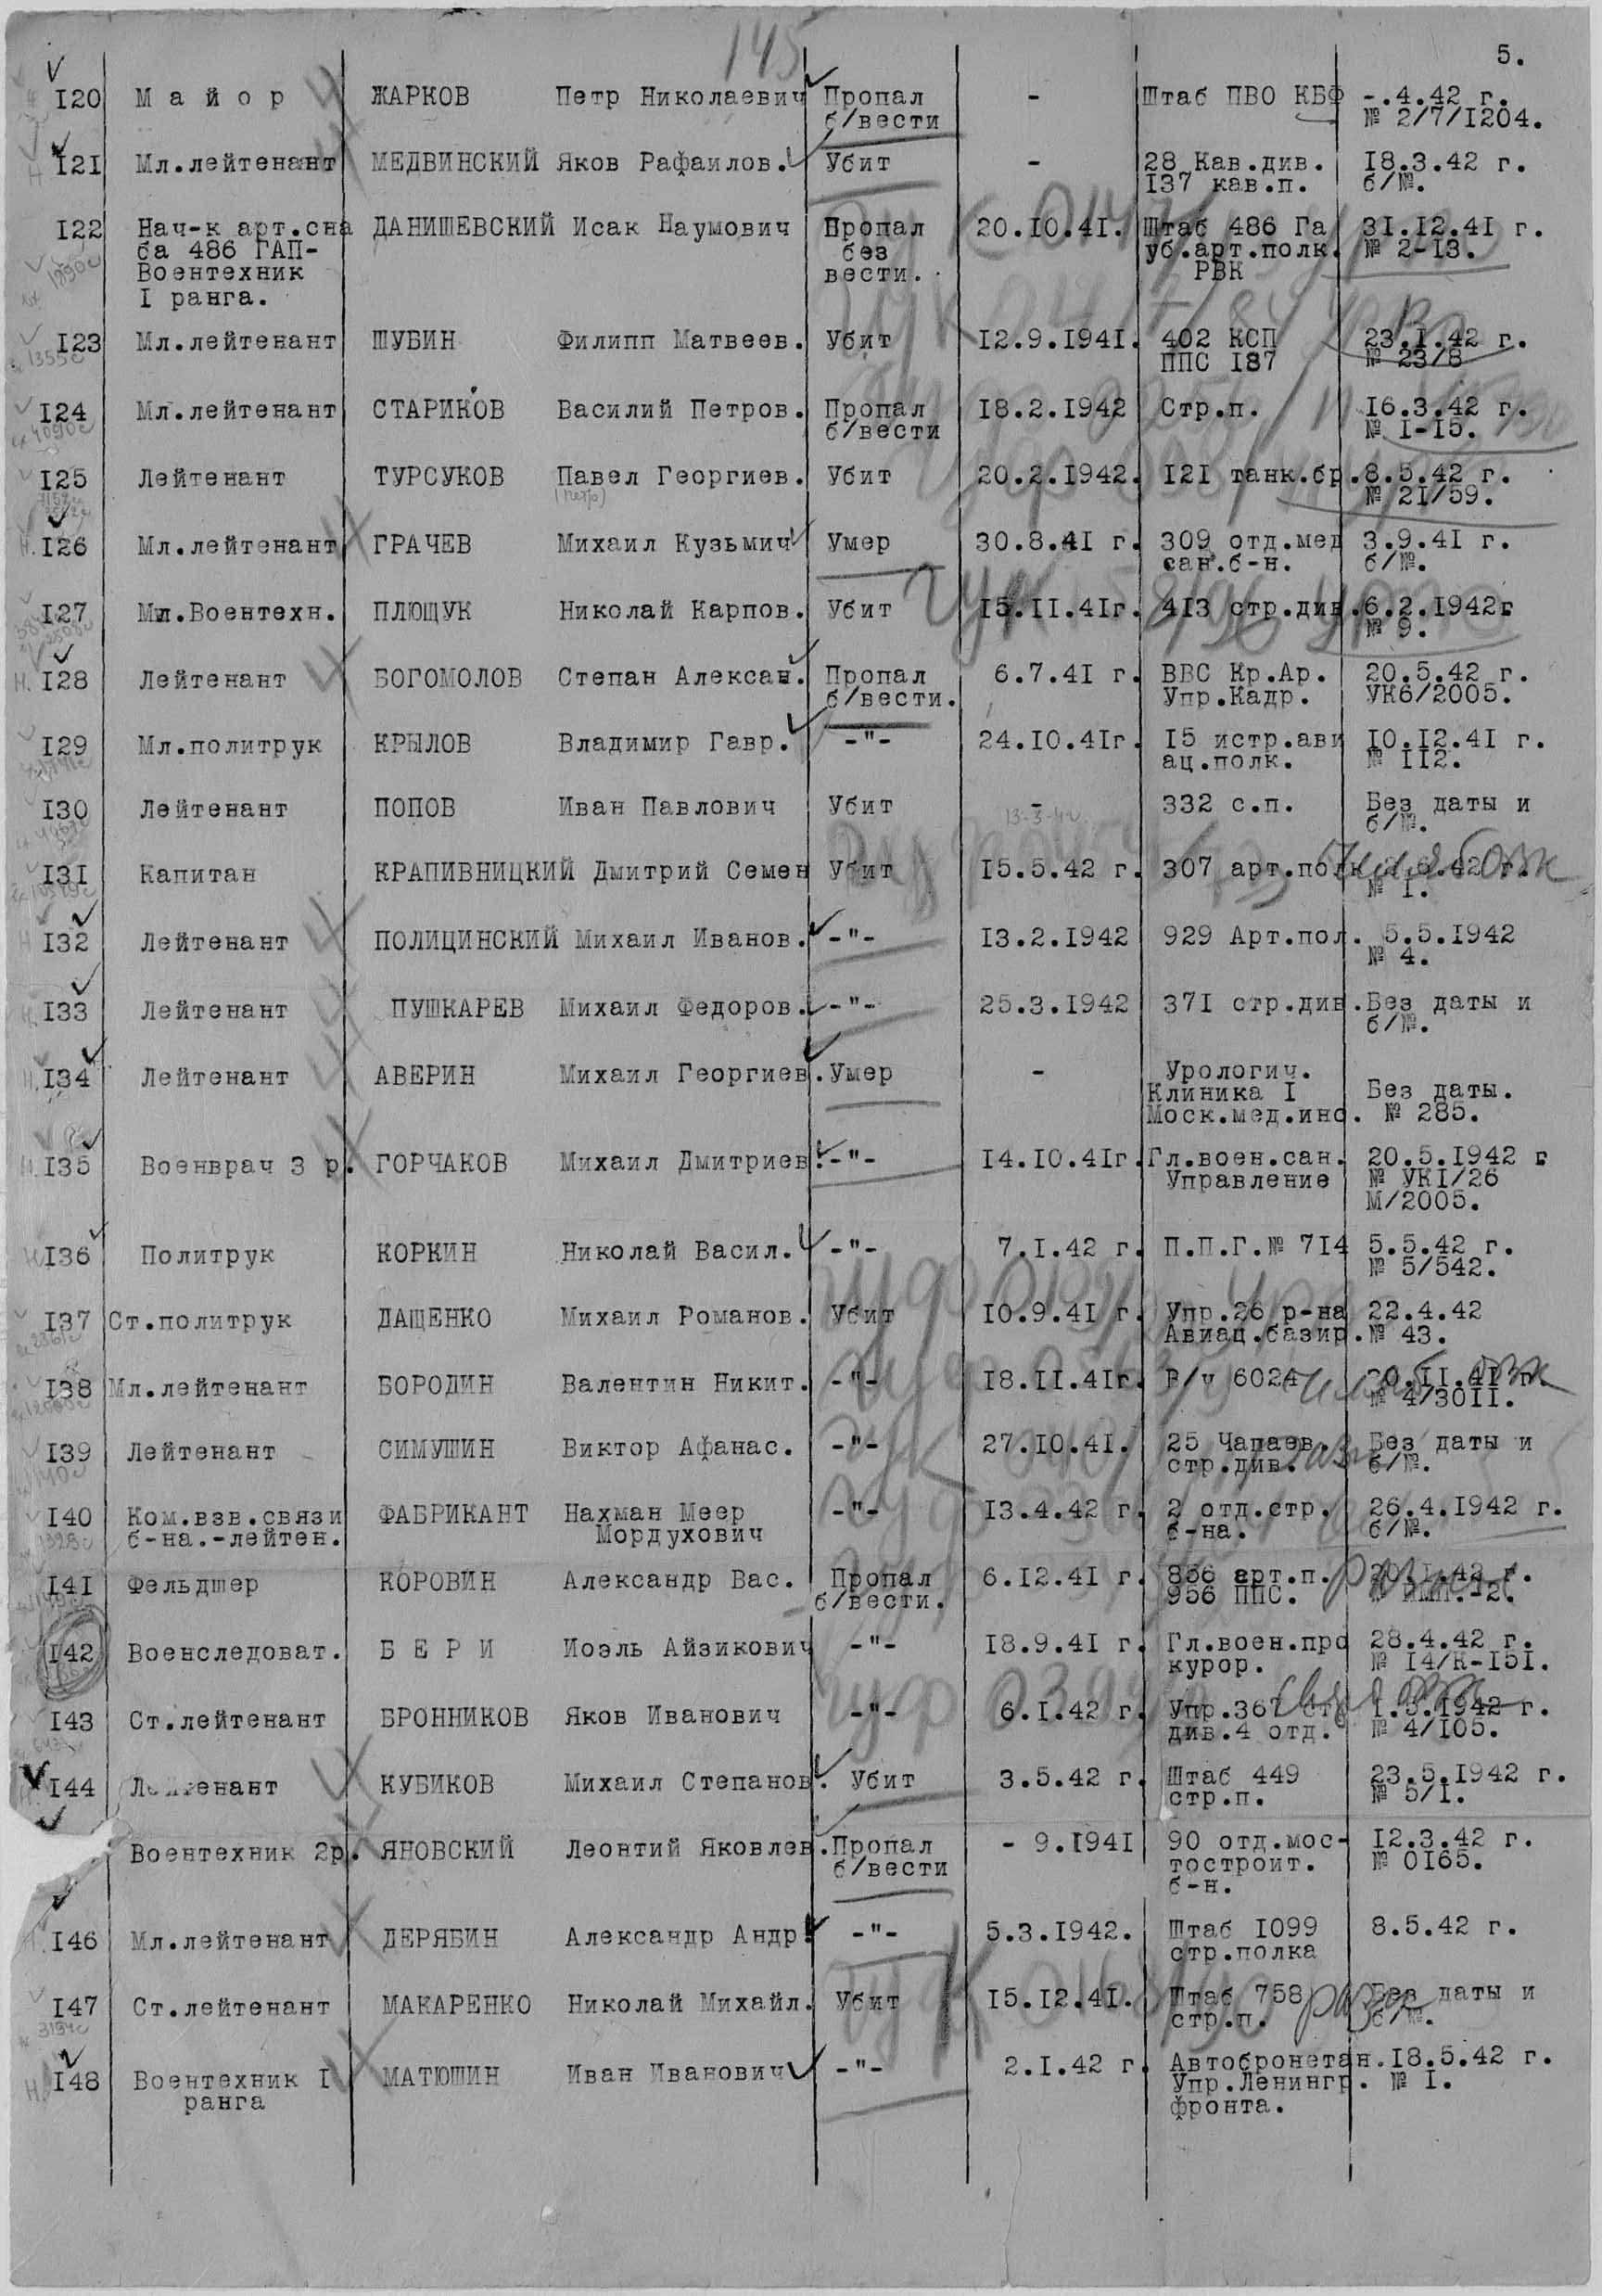 145
5.
I20 М а й о р ЖАРКОВ Петр Николаевич Пропал - Штаб ПВО КБФ -.4.42 г.
б/вести № 2/7/I204.
I2I Мл.лейтенант МЕДВИНСКИЙ Яков Рафаилов. Убит - 28 Кав.див. I8.3.42 г.
I37 кав.п. б/№.
I22 Нач-к арт.сна ДАНИШЕВСКИЙ Исак Наумович Пропал 20.I0.4I. Штаб 486 Га 3I.I2.4I г.
ба 486 ГАП- без уб.арт.полк. № 2-I3.
Воентехник вести. РВК
I ранга.
I23 Мл.лейтенант ШУБИН Филипп Матвеев. Убит I2.9.I94I. 402 КСП 23.I.42 г.
ППС I87 № 23/8
I24 Мл.лейтенант СТАРИКОВ Василий Петров. Пропал I8.2.I942 Стр.п. I6.3.42 г.
б/вести № I-I5.
I25 Лейтенант ТУРСУКОВ Павел Георгиев. Убит 20.2.I942. I2I танк.бр. 8.5.42 г.
(петр) № 2I/59.
I26 Мл.лейтенант ГРАЧЕВ Михаил Кузьмич Умер 30.8.4I г. 309 отд.мед 3.9.4I г.
сан.б-н. б/№.
I27 Мл.Воентехн. ПЛЮЩУК Николай Карпов. Убит I5.II.4Iг. 4I3 стр.див. 6.2.I942г
№ 9.
I28 Лейтенант БОГОМОЛОВ Степан Алексан. Пропал 6.7.4I г. ВВС Кр.Ар. 20.5.42 г.
б/вести. Упр.Кадр. УК6/2005.
I29 Мл.политрук КРЫЛОВ Владимир Гавр. -"- 24.I0.4Iг. I5 истр.ави I0.I2.4I г.
ац.полк. № II2.
I30 Лейтенант ПОПОВ Иван Павлович Убит - 332 с.п. Без даты и
13-3-42 б/№.
I3I Капитан КРАПИВНИЦКИЙ Дмитрий Семен Убит I5.5.42 г. 307 арт.полк .6.42 г.
№ I.
I32 Лейтенант ПОЛИЦИНСКИЙ Михаил Иванов. -"- I3.2.I942 929 Арт.пол. 5.5.I942
№ 4.
I33 Лейтенант ПУШКАРЕВ Михаил Федоров. -"- 25.3.I942 37I стр.див. Без даты и
б/№.
I34 Лейтенант АВЕРИН Михаил Георгиев. Умер - Урологич.
Клиника I Без даты.
Моск.мед.инс. № 285.
I35 Военврач 3 р. ГОРЧАКОВ Михаил Дмитриев. -"- I4.I0.4Iг. Гл.воен.сан. 20.5.I942 г
Управление № УКI/26
М/2005.
I36 Политрук КОРКИН Николай Васил. -"- 7.I.42 г. П.П.Г.№ 7I4 5.5.42 г.
№ 5/542.
I37 Ст.политрук ДАЩЕНКО Михаил Романов. Убит I0.9.4I г. Упр.26 р-на 22.4.42
Авиац.базир. № 43.
I38 Мл.лейтенант БОРОДИН Валентин Никит. -"- I8.II.4Iг. В/ч 6024 20.II.4I г.
№ 4/30II.
I39 Лейтенант СИМУШИН Виктор Афанас. -"- 27.I0.4I. 25 Чапаев. Без даты и
стр.див. б/№.
I40 Ком.взв.связи ФАБРИКАНТ Нахман Меер -"- I3.4.42 г. 2 отд.стр. 26.4.I942 г.
б-на.-лейтен. Мордухович б-на. б/№.
I4I Фельдшер КОРОВИН Александр Вас. Пропал 6.I2.4I г. 856 арт.п. 20.I.42 г.
б/вести. 956 ППС.
I42 Военследоват. Б Е Р И Иоэль Айзикович -"- I8.9.4I г. Гл.воен.про 28.4.42 г.
курор. № I4/К-I5I.
I43 Ст.лейтенант БРОННИКОВ Яков Иванович -"- 6.I.42 г. Упр.367 ст I.5.I942 г.
див.4 отд. № 4/I05.
I44 Лейтенант КУБИКОВ Михаил Степанов. Убит 3.5.42 г. Штаб 449 23.5.I942 г.
стр.п. № 5/I.
Воентехник 2р. ЯНОВСКИЙ Леонтий Яковлев. Пропал - 9.I94I 90 отд.мос- I2.3.42 г.
б/вести тостроит. № 0I65.
б-н.
I46 Мл.лейтенант ДЕРЯБИН Александр Андр. -"- 5.3.I942. Штаб I099 8.5.42 г.
стр.полка
I47 Ст.лейтенант МАКАРЕНКО Николай Михайл. Убит I5.I2.4I. Штаб 758 Без даты и
стр.п. б/№.
I48 Воентехник I МАТЮШИН Иван Иванович -"- 2.I.42 г. Автобронетан. I8.5.42 г.
ранга Упр.Ленингр. № I.
фронта.